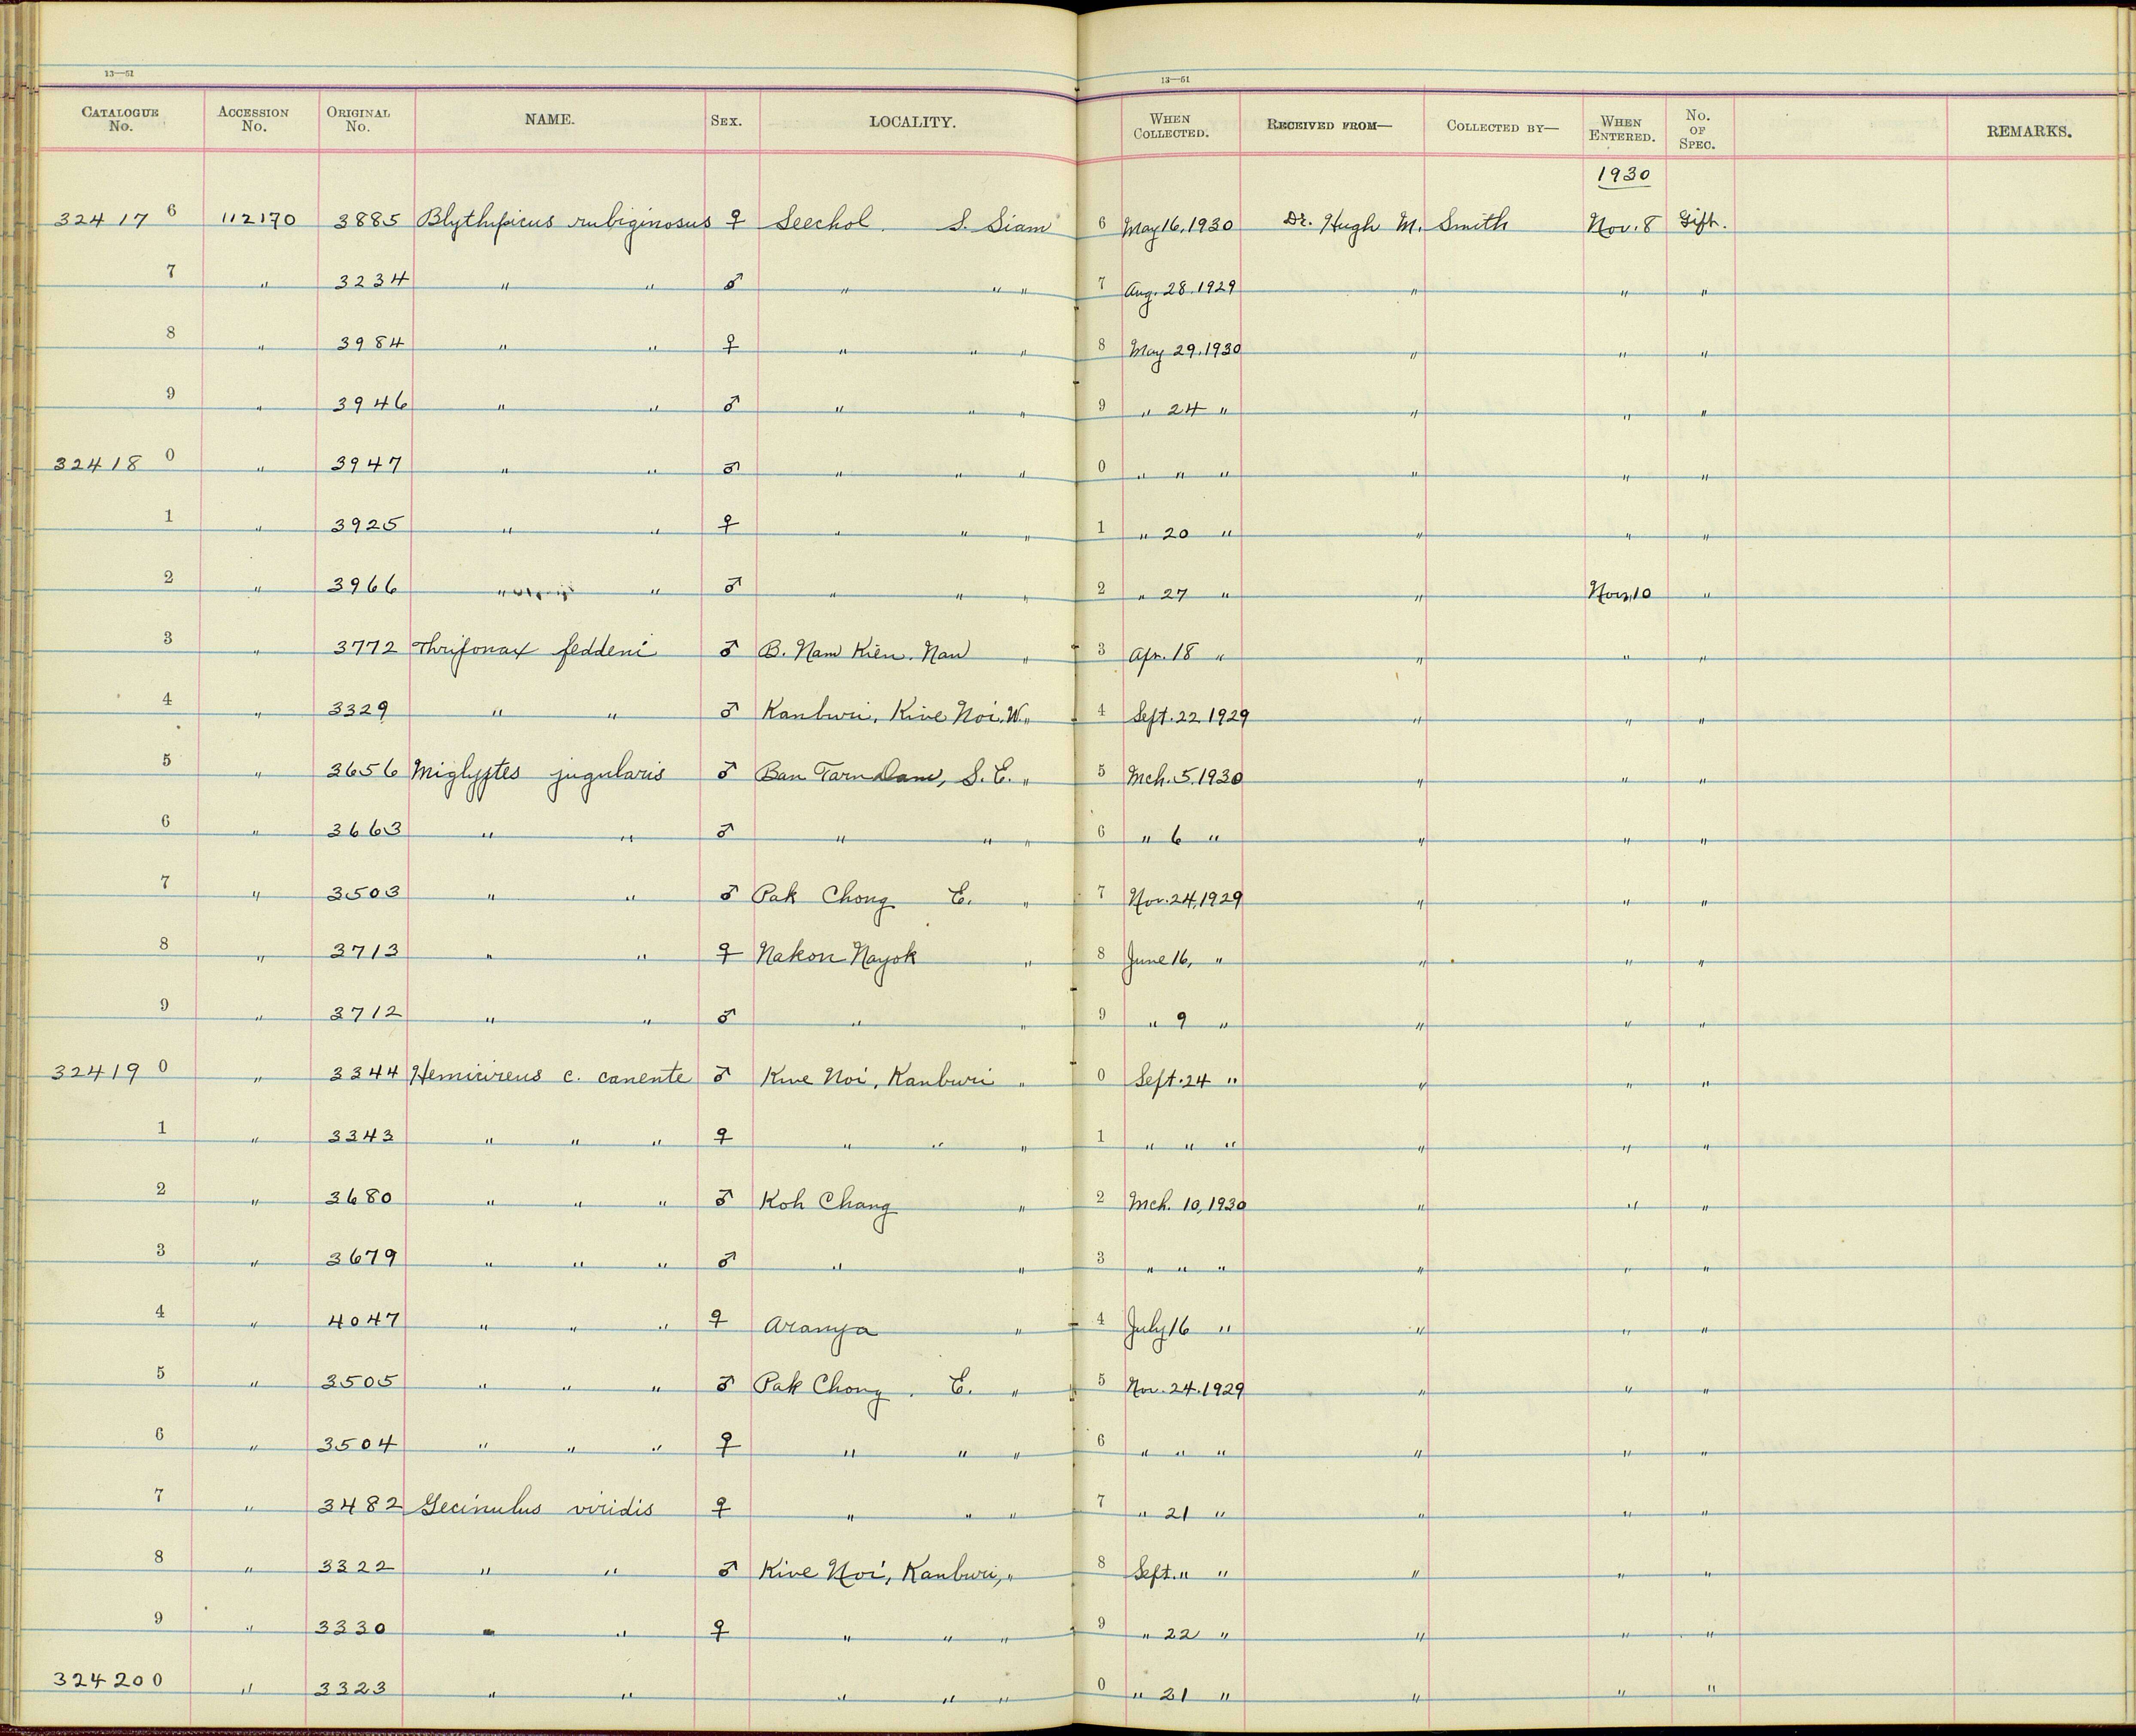 13—51 13—51
CATALOGUE No. ACCESSION No. ORIGINAL No. NAME. SEX. LOCALITY. WHEN COLLECTED. RECEIVED FROM— COLLECTED BY— WHEN ENTERED. No. OF SPEC. REMARKS.
1930
32417 6 112170 3885 Blythipicus rubiginosus ♀ Seechol. S. Siam 6 May 16, 1930 Dr. Hugh M. Smith Nov. 8 Gift.
7 " 3234 " " ♂ " " " 7 Aug. 28. 1929 " " "
8 " 3984 " " ♀ " " " 8 May 29, 1930 " " "
9 " 3946 " " ♂ " " " 9 " 24 " " " "
32418 0 " 3947 " " ♂ " " " 0 " " " " " "
1 " 3925 " " ♀ " " " 1 " 20 " " " "
2 " 3966 " " ♂ " " " 2 " 27 " " Nov. 10 "
3 " 3772 Thriponax feddeni ♂ B. Nam Kien. Nan " 3 Apr. 18 " " " "
4 " 3329 " " ♂ Kanburi, Kwe Noi. W. " 4 Sept. 22 1929 " " "
5 " 3656 Miglyptes jugularis ♂ Ban Tarn Dam, S.E. " 5 Mch. 5. 1930 " " "
6 " 3663 " " ♂ " " " 6 " 6 " " " "
7 " 3503 " " ♂ Pak Chong E. " 7 Nov. 24, 1929 " " "
8 " 3713 " " ♀ Nakon Nayok " 8 June 16, " " " "
9 " 3712 " " ♂ " " 9 " 9 " " " "
32419 0 " 3344 Hemicircus c. canente ♂ Kwe Noi, Kanburi " 0 Sept. 24 " " " "
1 " 3343 " " " ♀ " " " 1 " " " " " "
2 " 3680 " " " ♂ Koh Chang " 2 Mch. 10, 1930 " " "
3 " 3679 " " " ♂ " " 3 " " " " " "
4 " 4047 " " " ♀ Aranya " 4 July 16 " " " "
5 " 3505 " " " ♂ Pak Chong. E. " 5 Nov. 24. 1929 " " "
6 " 3504 " " " ♀ " " " 6 " " " " " "
7 " 3482 Gecinulus viridis ♀ " " " 7 " 21 " " " "
8 " 3322 " " ♂ Kwe Noi, Kanburi, " 8 Sept. " " " " "
9 " 3330 " " ♀ " " " 9 " 22 " " " "
32420 0 " 3323 " " " " " 0 " 21 " " " "